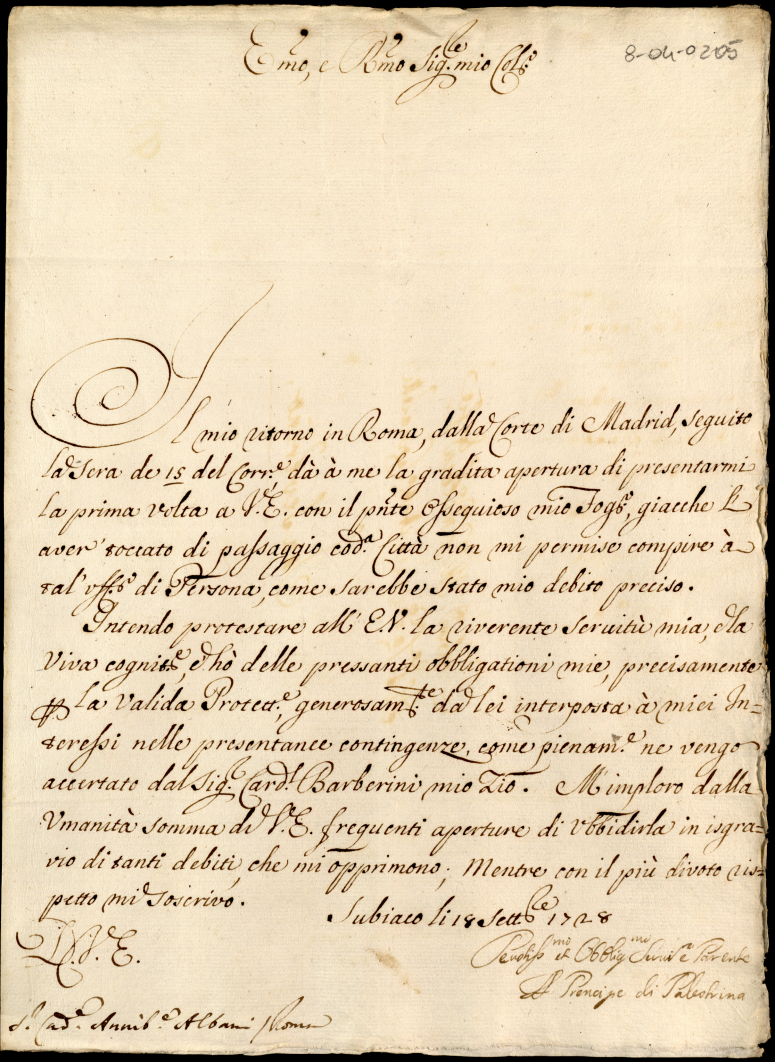 8-04-0205
Em̃o, e Rm̃o Sig.re mio Col.mo
Il mio ritorno in Roma, dalla Corte di Madrid, seguito
la sera de 15 del Corr.e dà à me la gradita apertura di presentarmi
la prima volta a V.E. con il pn̄te ossequioso mio fog.o, giacche l'
aver' toccato di passaggio cod.a Città non mi permise compire à
tal' uff.o di Persona, come sarebbe stato mio debito preciso.
Intendo protestare all' E.V. la riverente servitù mia, e la
viva cognit.e, ch'hò delle pressanti obbligationi mie, precisamente
p la valida Protett.e, generosam.te da lei interposta à miei In-
teressi nelle presentanee contingenze, come pienam.e ne vengo
accertato dal Sig.r Card.l Barberini mio Zio. M'imploro dalla
Umanità somma di V.E. frequenti aperture di ubbidirla in isgra-
vio di tanti debiti, che mi opprimono; Mentre con il più divoto ris-
petto mi soscrivo.
Subiaco li 18 Sett.bre 1728
D.V.E.
Devotiss.mo et Obblig.mo Servi.e Parente
Il Prencipe di Palestrina
S.r Cad.e Annib.e Albani Roma